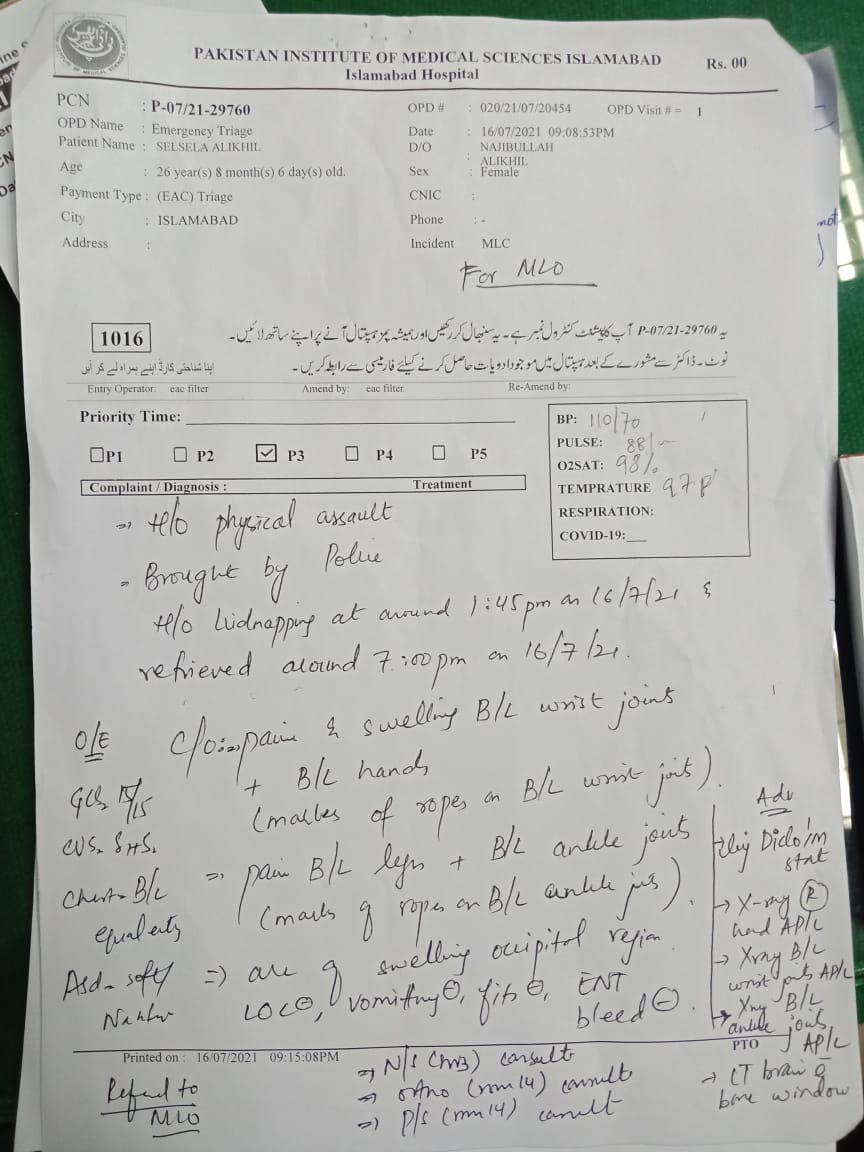 PAKISTAN INSTITUTE OF MEDICAL SCIENCES ISLAMABAD
Rs. 00
Islamabad Hospital
PCN : P-07/21-29760
OPD # : 020/21/07/20454 OPD Visit # = 1
OPD Name : Emergency Triage
Date : 16/07/2021 09:08:53PM
Patient Name : SELSELA ALIKHIL
D/O : NAJIBULLAH ALIKHIL
Age : 26 year(s) 8 month(s) 6 day(s) old.
Sex : Female
Payment Type : (EAC) Triage
CNIC :
City : ISLAMABAD
Phone : -
Address :
Incident MLC
For MLO
1016
یہ P-07/21-29760 آپ کا پیشنٹ کنٹرول نمبر ہے۔ یہ سنبھال کر رکھیں اور ہمیشہ پمز ہسپتال آنے پر اپنے ساتھ لائیں۔
نوٹ۔ ڈاکٹر سے مشورے کے بعد ہسپتال میں موجود ادویات حاصل کرنے کیلئے فارمیسی سے رابطہ کریں۔
اپنا شناختی کارڈ اپنے ہمراہ لے کر آئیں
Entry Operator: eac filter Amend by: eac filter Re-Amend by:
Priority Time:
P1 P2 P3 P4 P5
BP: 110/70
PULSE: 88/
O2SAT: 98%
TEMPRATURE 97F
RESPIRATION:
COVID-19:
Complaint / Diagnosis : Treatment
⇒ H/o physical assault
= Brought by Police
H/o kidnapping at around 1:45pm on 16/7/21 &
retrieved around 7:00pm on 16/7/21.
O/E
GCS 15/15
CVS
Chest B/L
equal
Abd - soft
C/o :⇒ pain & swelling B/L wrist joints
+ B/L hands
(marks of ropes on B/L wrist joints).
⇒ pain B/L legs + B/L ankle joints
(marks of ropes on B/L ankle jts).
⇒ area of swelling occipital region.
LOC⊖, vomitting⊖, fits⊖, ENT
bleed ⊖.
Adv
Inj Diclo i/m
stat
→ X-ray Ⓡ
hand AP/L
→ Xray B/L
wrist joints AP/L
→ Xray B/L
ankle joints
AP/L
→ CT brain
bone window
PTO
Printed on : 16/07/2021 09:15:08PM
⇒ N/S consult
⇒ ortho (rm 14) consult
⇒ P/S (rm 14) consult
Referred to
MLO
not